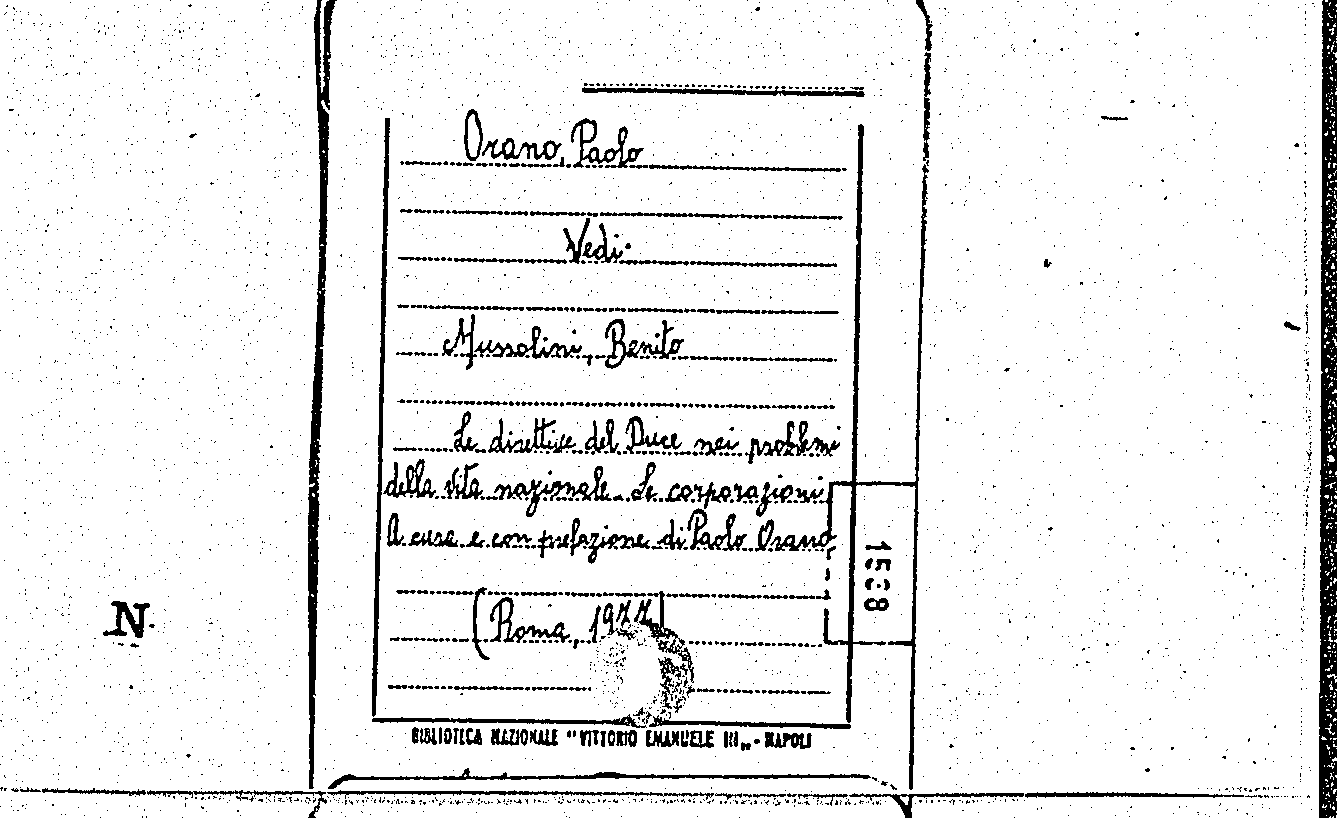 Orano, Paolo
Vedi:
Mussolini, Benito
Le direttive del Duce nei problemi
della vita nazionale. Le corporazioni.
A cura e con prefazione di Paolo Orano.
(Roma,
1538
N.
BIBLIOTECA NAZIONALE "VITTORIO EMANUELE III„ - NAPOLI